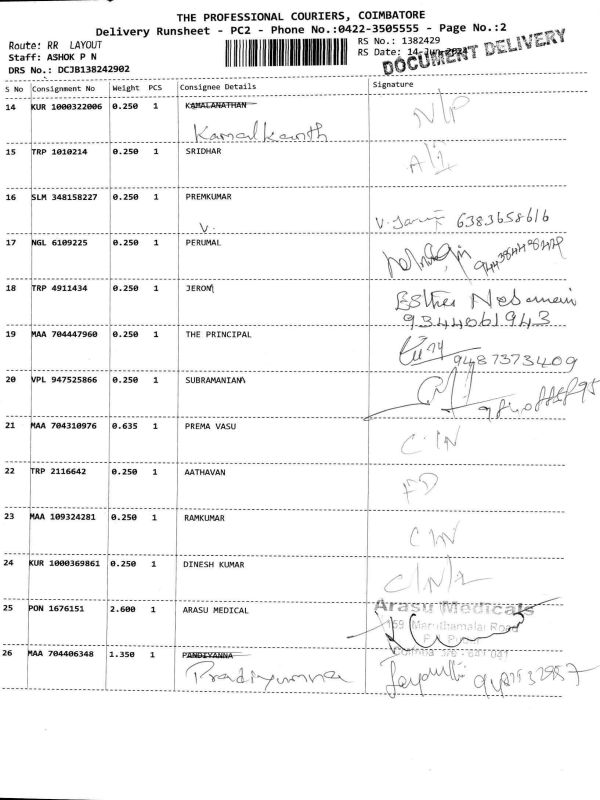 THE PROFESSIONAL COURIERS, COIMBATORE
Delivery Runsheet - PC2 - Phone No.:0422-3505555 - Page No.:2
Route: RR LAYOUT
RS No.: 1382429
Staff: ASHOK P N
RS Date: 14-Jun-2024
DRS No.: DCJB138242902
DOCUMENT DELIVERY
S No Consignment No Weight PCS Consignee Details Signature
14 KUR 1000322006 0.250 1 KAMALANATHAN N/P
Kamalkanth
15 TRP 1010214 0.250 1 SRIDHAR
16 SLM 348158227 0.250 1 PREMKUMAR
V. 6383658616
17 NGL 6109225 0.250 1 PERUMAL
18 TRP 4911434 0.250 1 JERON
Esther
9344061943
19 MAA 704447960 0.250 1 THE PRINCIPAL
9487373409
20 VPL 947525866 0.250 1 SUBRAMANIAN
21 MAA 704310976 0.635 1 PREMA VASU
C-IN
22 TRP 2116642 0.250 1 AATHAVAN
FD
23 MAA 109324281 0.250 1 RAMKUMAR
C/N
24 KUR 1000369861 0.250 1 DINESH KUMAR
25 PON 1676151 2.600 1 ARASU MEDICAL
Arasu Medicals
159 Maruthamalai Road
26 MAA 704406348 1.350 1 PANDIYANNA
Pradiyumna